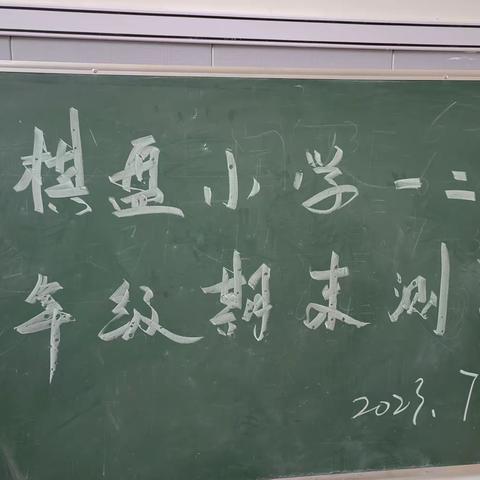 棋盘小学一二
年级期末测
2023.7